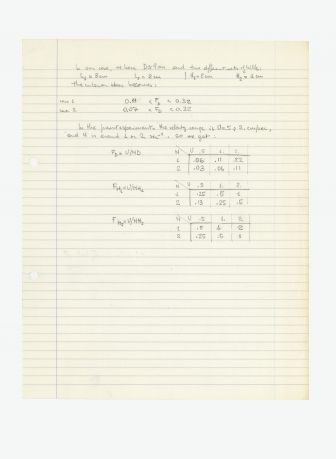 In our case, where D = 9 cm and two different sets of hills:
H₁ = 2 cm
H₂ = 1 cm
The criterion above becomes:
case 1 0.11 < F_D < 0.32
case 2 0.07 < F_D < 0.32
In the present experiment the velocity range is 0.5, 2 cm/sec,
and N is around 1 or 2 sec⁻¹. So we get:
F_D = U/ND N \ U .5 1. 2.
1 .06 .11 .22
2 .03 .06 .11
F_H₁ = U/NH₁ N \ U .5 1. 2.
1 .25 .5 1
2 .13 .25 .5
F_H₂ = U/NH₂ N \ U .5 1. 2
1 .5 1 2
2 .25 .5 1